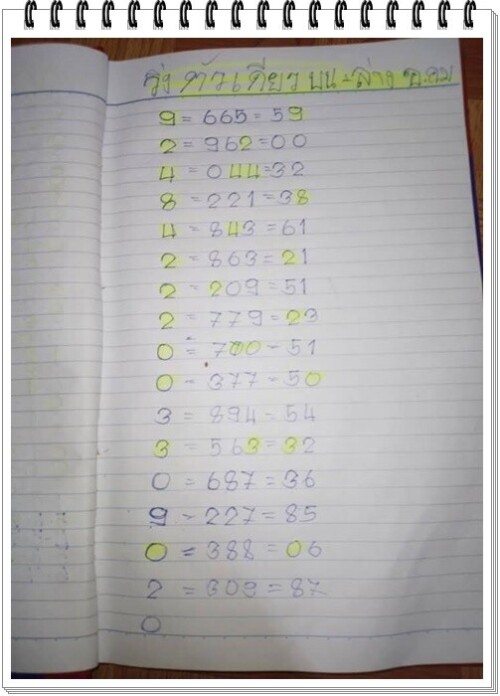 วิ่ง ตัวเดียว บน-ล่าง
9 = 665 = 59
2 = 962 = 00
4 = 044 = 32
8 = 221 = 38
4 = 843 = 61
2 = 863 = 21
2 = 209 = 51
2 = 779 = 23
0 = 700 - 51
0 - 377 - 50
3 = 894 - 54
3 = 563 = 32
0 = 687 = 36
9 - 227 = 85
0 = 388 = 06
2 = 309 = 87
0